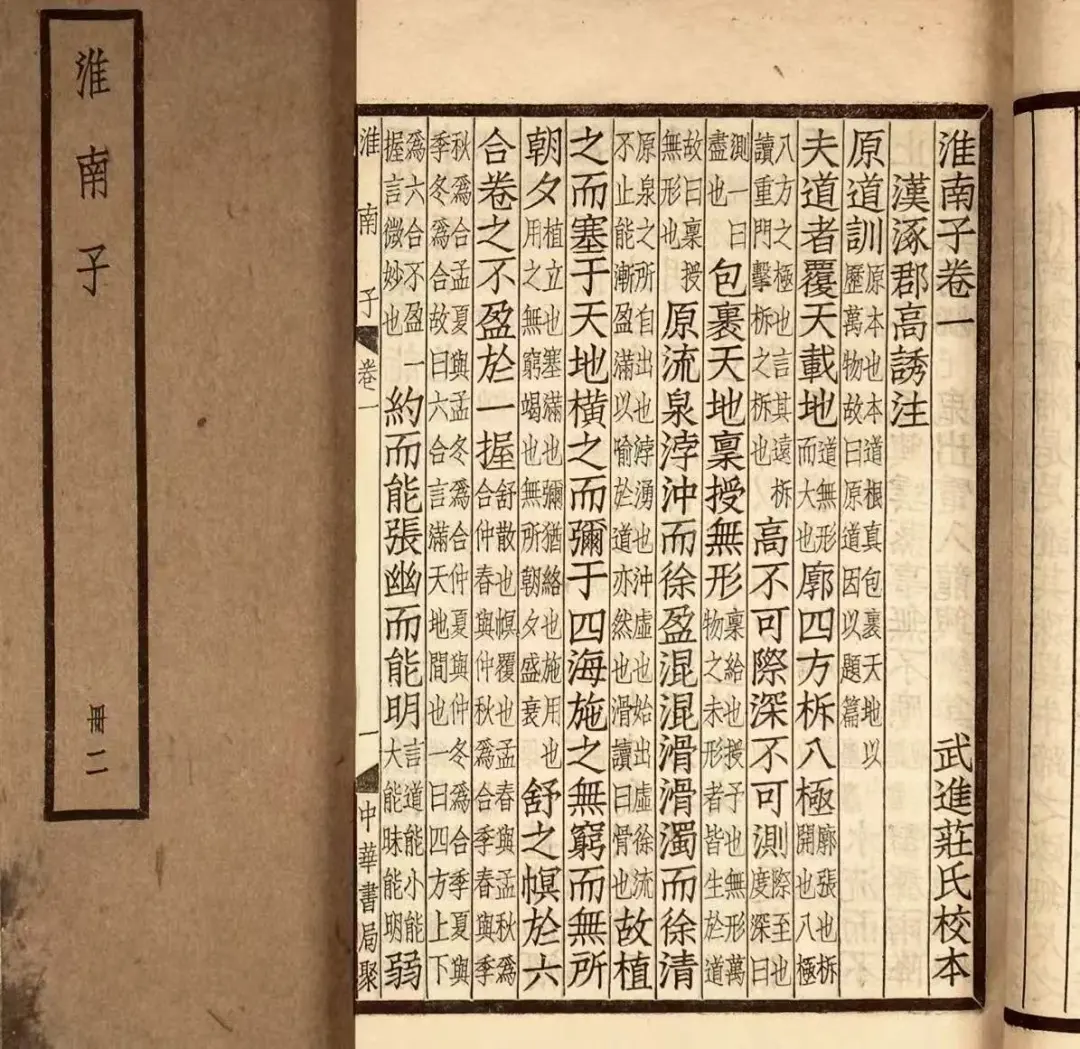 淮南子 冊二
淮南子卷一 武進莊氏校本
漢涿郡高誘注
原道訓 原本也本道根真包裹天地以歷萬物故曰原道因以題篇
夫道者覆天載地 道無形而大也 廓四方柝八極 廓張也柝開也八極
八方之極也言其遠柝讀重門擊柝之柝也 高不可際深不可測 際至也度深曰
測一曰盡也 包裹天地稟授無形 稟給也授予也無形萬物之未形者皆生於道
故曰稟授無形也 原流泉浡沖而徐盈混混滑滑濁而徐清
原泉之所自出也浡湧也沖虛也始出虛徐流不止能漸盈滿以喻於道亦然也滑讀曰骨也 故植
之而塞于天地橫之而彌于四海施之無窮而無所
朝夕 植立也塞滿也彌猶絡也施用也用之無窮竭也無所朝夕盛衰 舒之幎於六
合卷之不盈於一握 舒散也幎覆也孟春與孟秋爲合仲春與仲秋爲合季春與季
秋爲合孟夏與孟冬爲合仲夏與仲冬爲合季夏與季冬爲合故曰六合言滿天地間也一曰四方上下
爲六合不盈一握言微妙也 約而能張幽而能明 言道能小能大能昧能明 弱
淮南子 卷一 一 中華書局聚